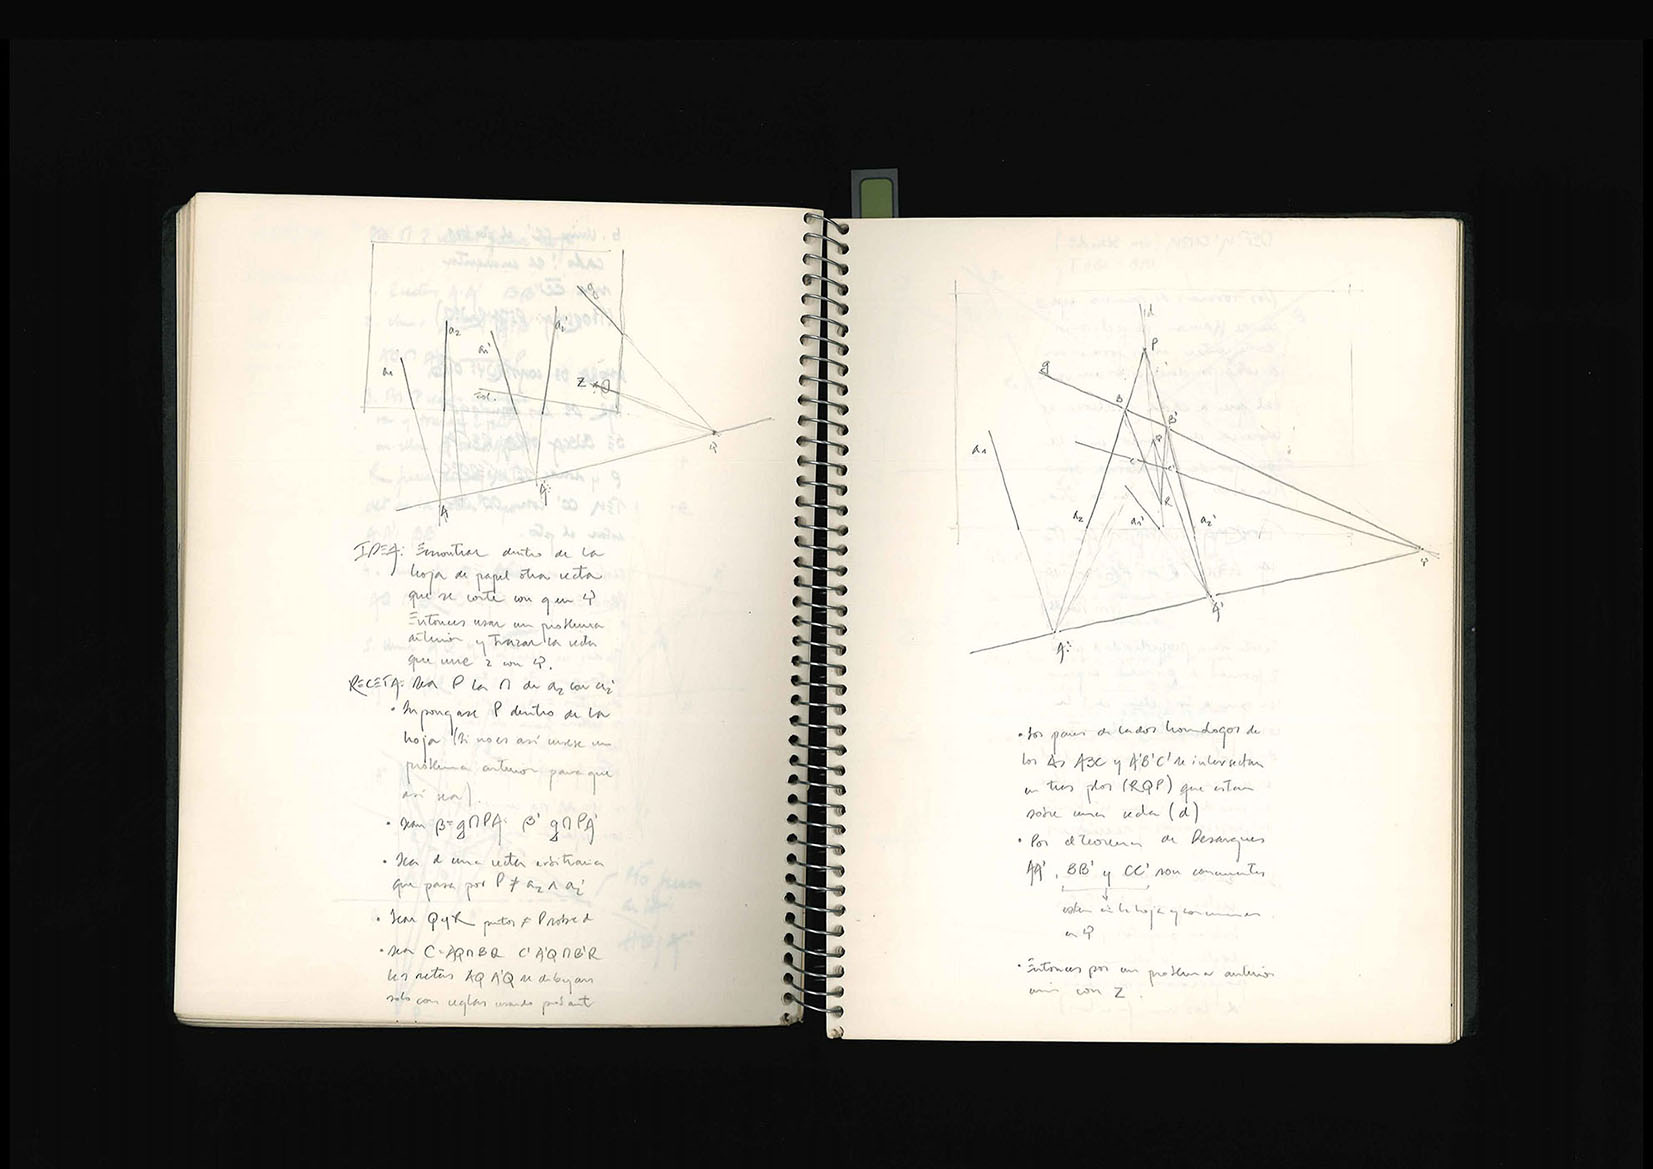 a₁
a₂
a₁'
a₂'
g
sol.
Z
Ψ
A
A'
IDEA: Encontrar dentro de la
hoja de papel otra recta
que se corte con g en Ψ
Entonces usar un problema
anterior y trazar la recta
que une z con Ψ.
RECETA: Sea P la ∩ de a₂ con a₂'
• Supongase P dentro de la
hoja (Si no es así usese un
problema anterior para que
así sea).
• Sean B=g∩PA B' g∩PA'
• Sea d una recta arbitraria
que pasa por P ≠ a₂ ∧ a₂'
• Sean Q y R puntos ≠ P sobre d
• Sean C=AQ∩BR C' A'Q∩B'R
las rectas AQ A'Q se dibujan
solo con reglas usando
d
P
g
B
B'
Q
C
C'
R
a₁
a₂
a₁'
a₂'
Ψ
A
A'
• Los pares de lados homologos de
los Δs ABC y A'B'C' se intersectan
en tres ptos (RQP) que estan
sobre una recta (d)
• Por el teorema de Desargues
AA', BB' y CC' son concurrentes
estan en la hoja y concurren
en Ψ
• Entonces por un problema anterior
unir con Z.